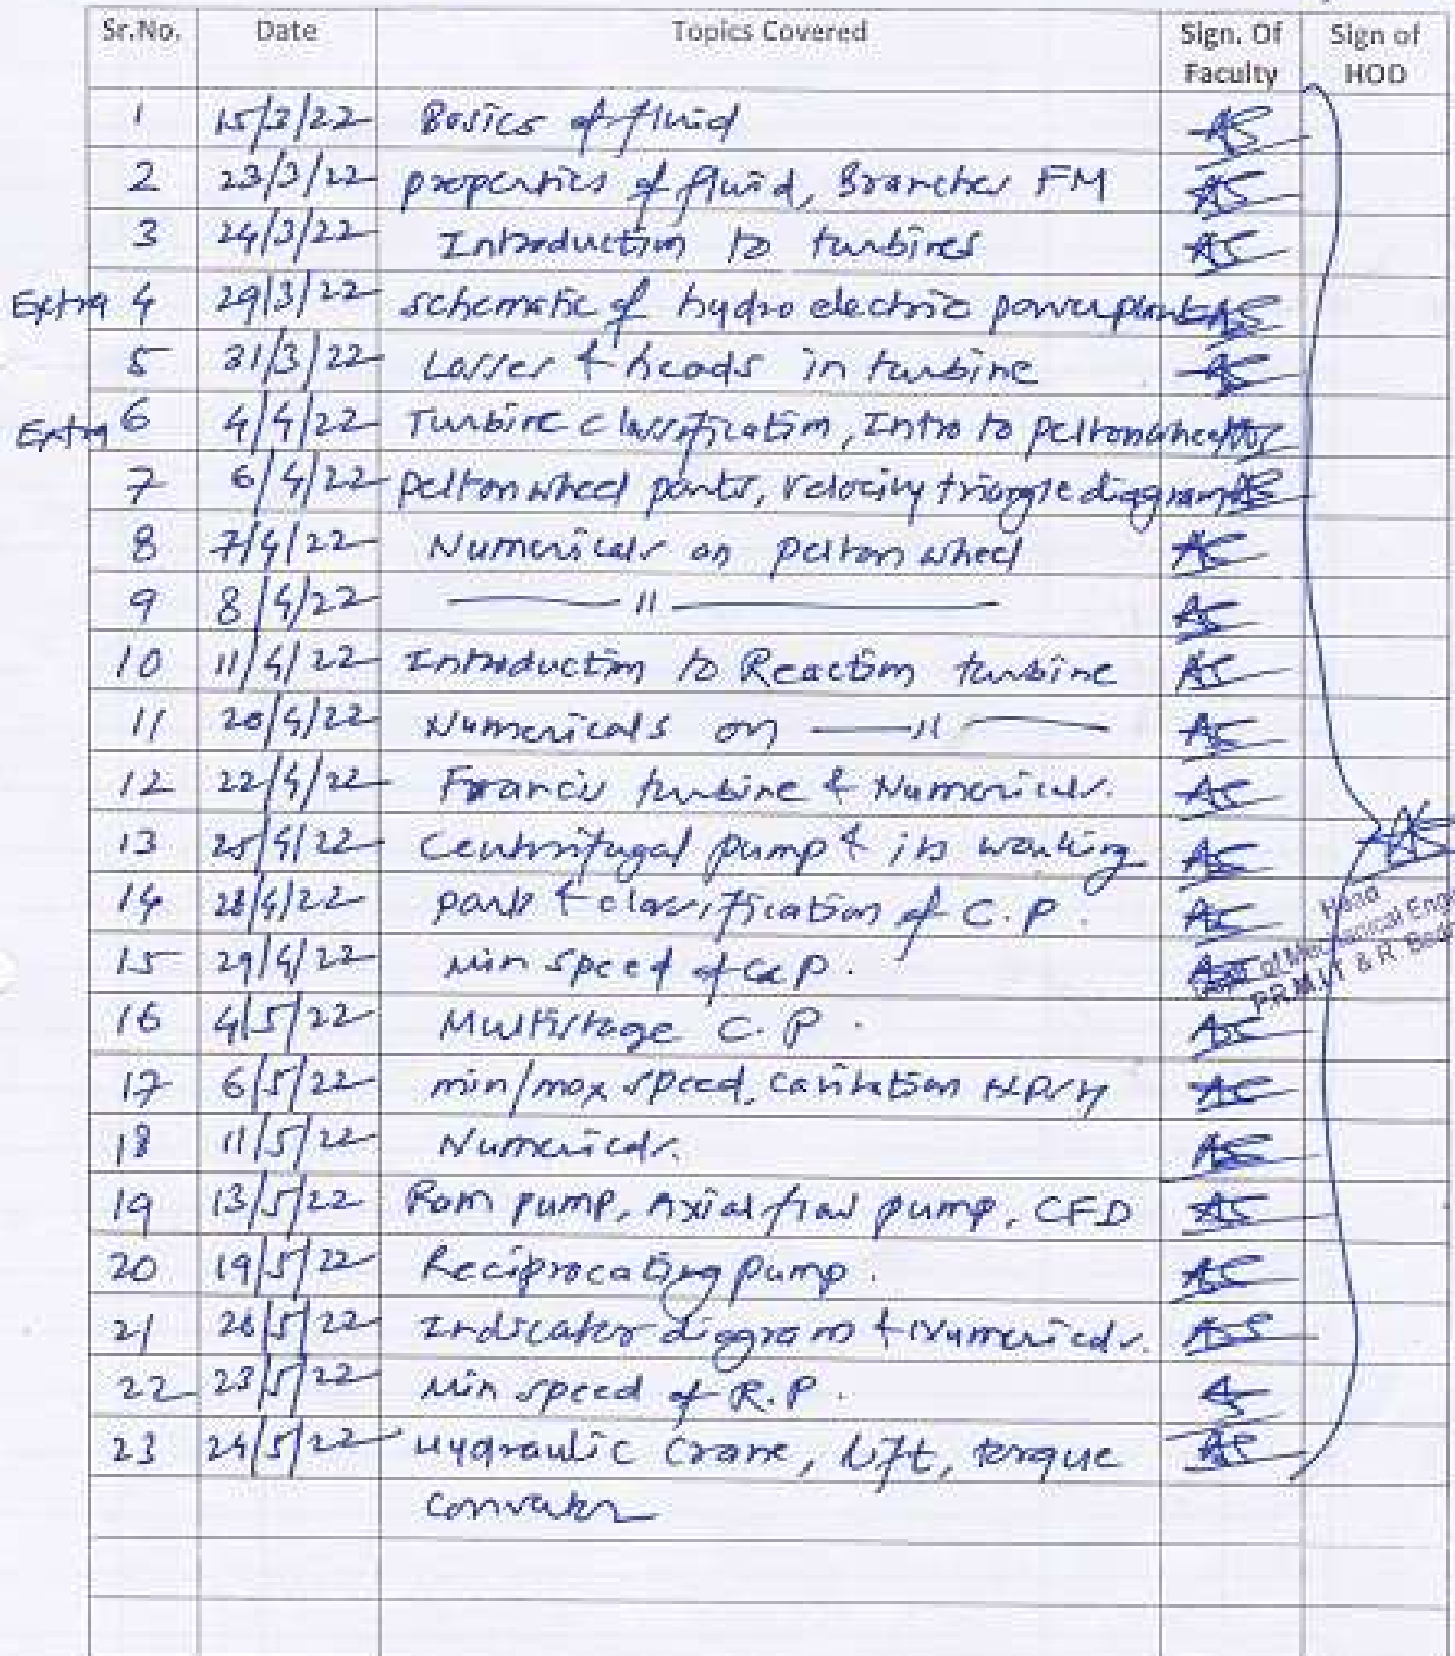 Sr.No. Date Topics Covered Sign. Of Faculty Sign of HOD
1 15/3/22 Basics of fluid
2 23/3/22 properties of fluid, Branches FM
3 24/3/22 Introduction to turbines
Extra 4 29/3/22 schematic of hydro electric power plant
5 31/3/22 Losses & heads in turbine
Extra 6 4/4/22 Turbine classification, Intro to pelton wheel
7 6/4/22 pelton wheel parts, velocity triangle diagram
8 7/4/22 Numericals on pelton wheel
9 8/4/22 —— 11 ——
10 11/4/22 Introduction to Reaction turbine
11 20/4/22 Numericals on —— 11 ——
12 22/4/22 Francis turbine & Numericals.
13 25/4/22 Centrifugal pump & its working
14 28/4/22 part & classification of C.P.
15 29/4/22 Min speed of C.P.
16 4/5/22 Multistage C.P.
17 6/5/22 min/max speed, cavitation NPSH
18 11/5/22 Numericals.
19 13/5/22 Ram pump, Axial flow pump, CFD
20 19/5/22 Reciprocating pump.
21 20/5/22 Indicator diagram & Numericals.
22 23/5/22 Min speed of R.P.
23 24/5/22 Hydraulic Crane, lift, torque
converter
Head
of Mechanical Eng
PRMIT & R